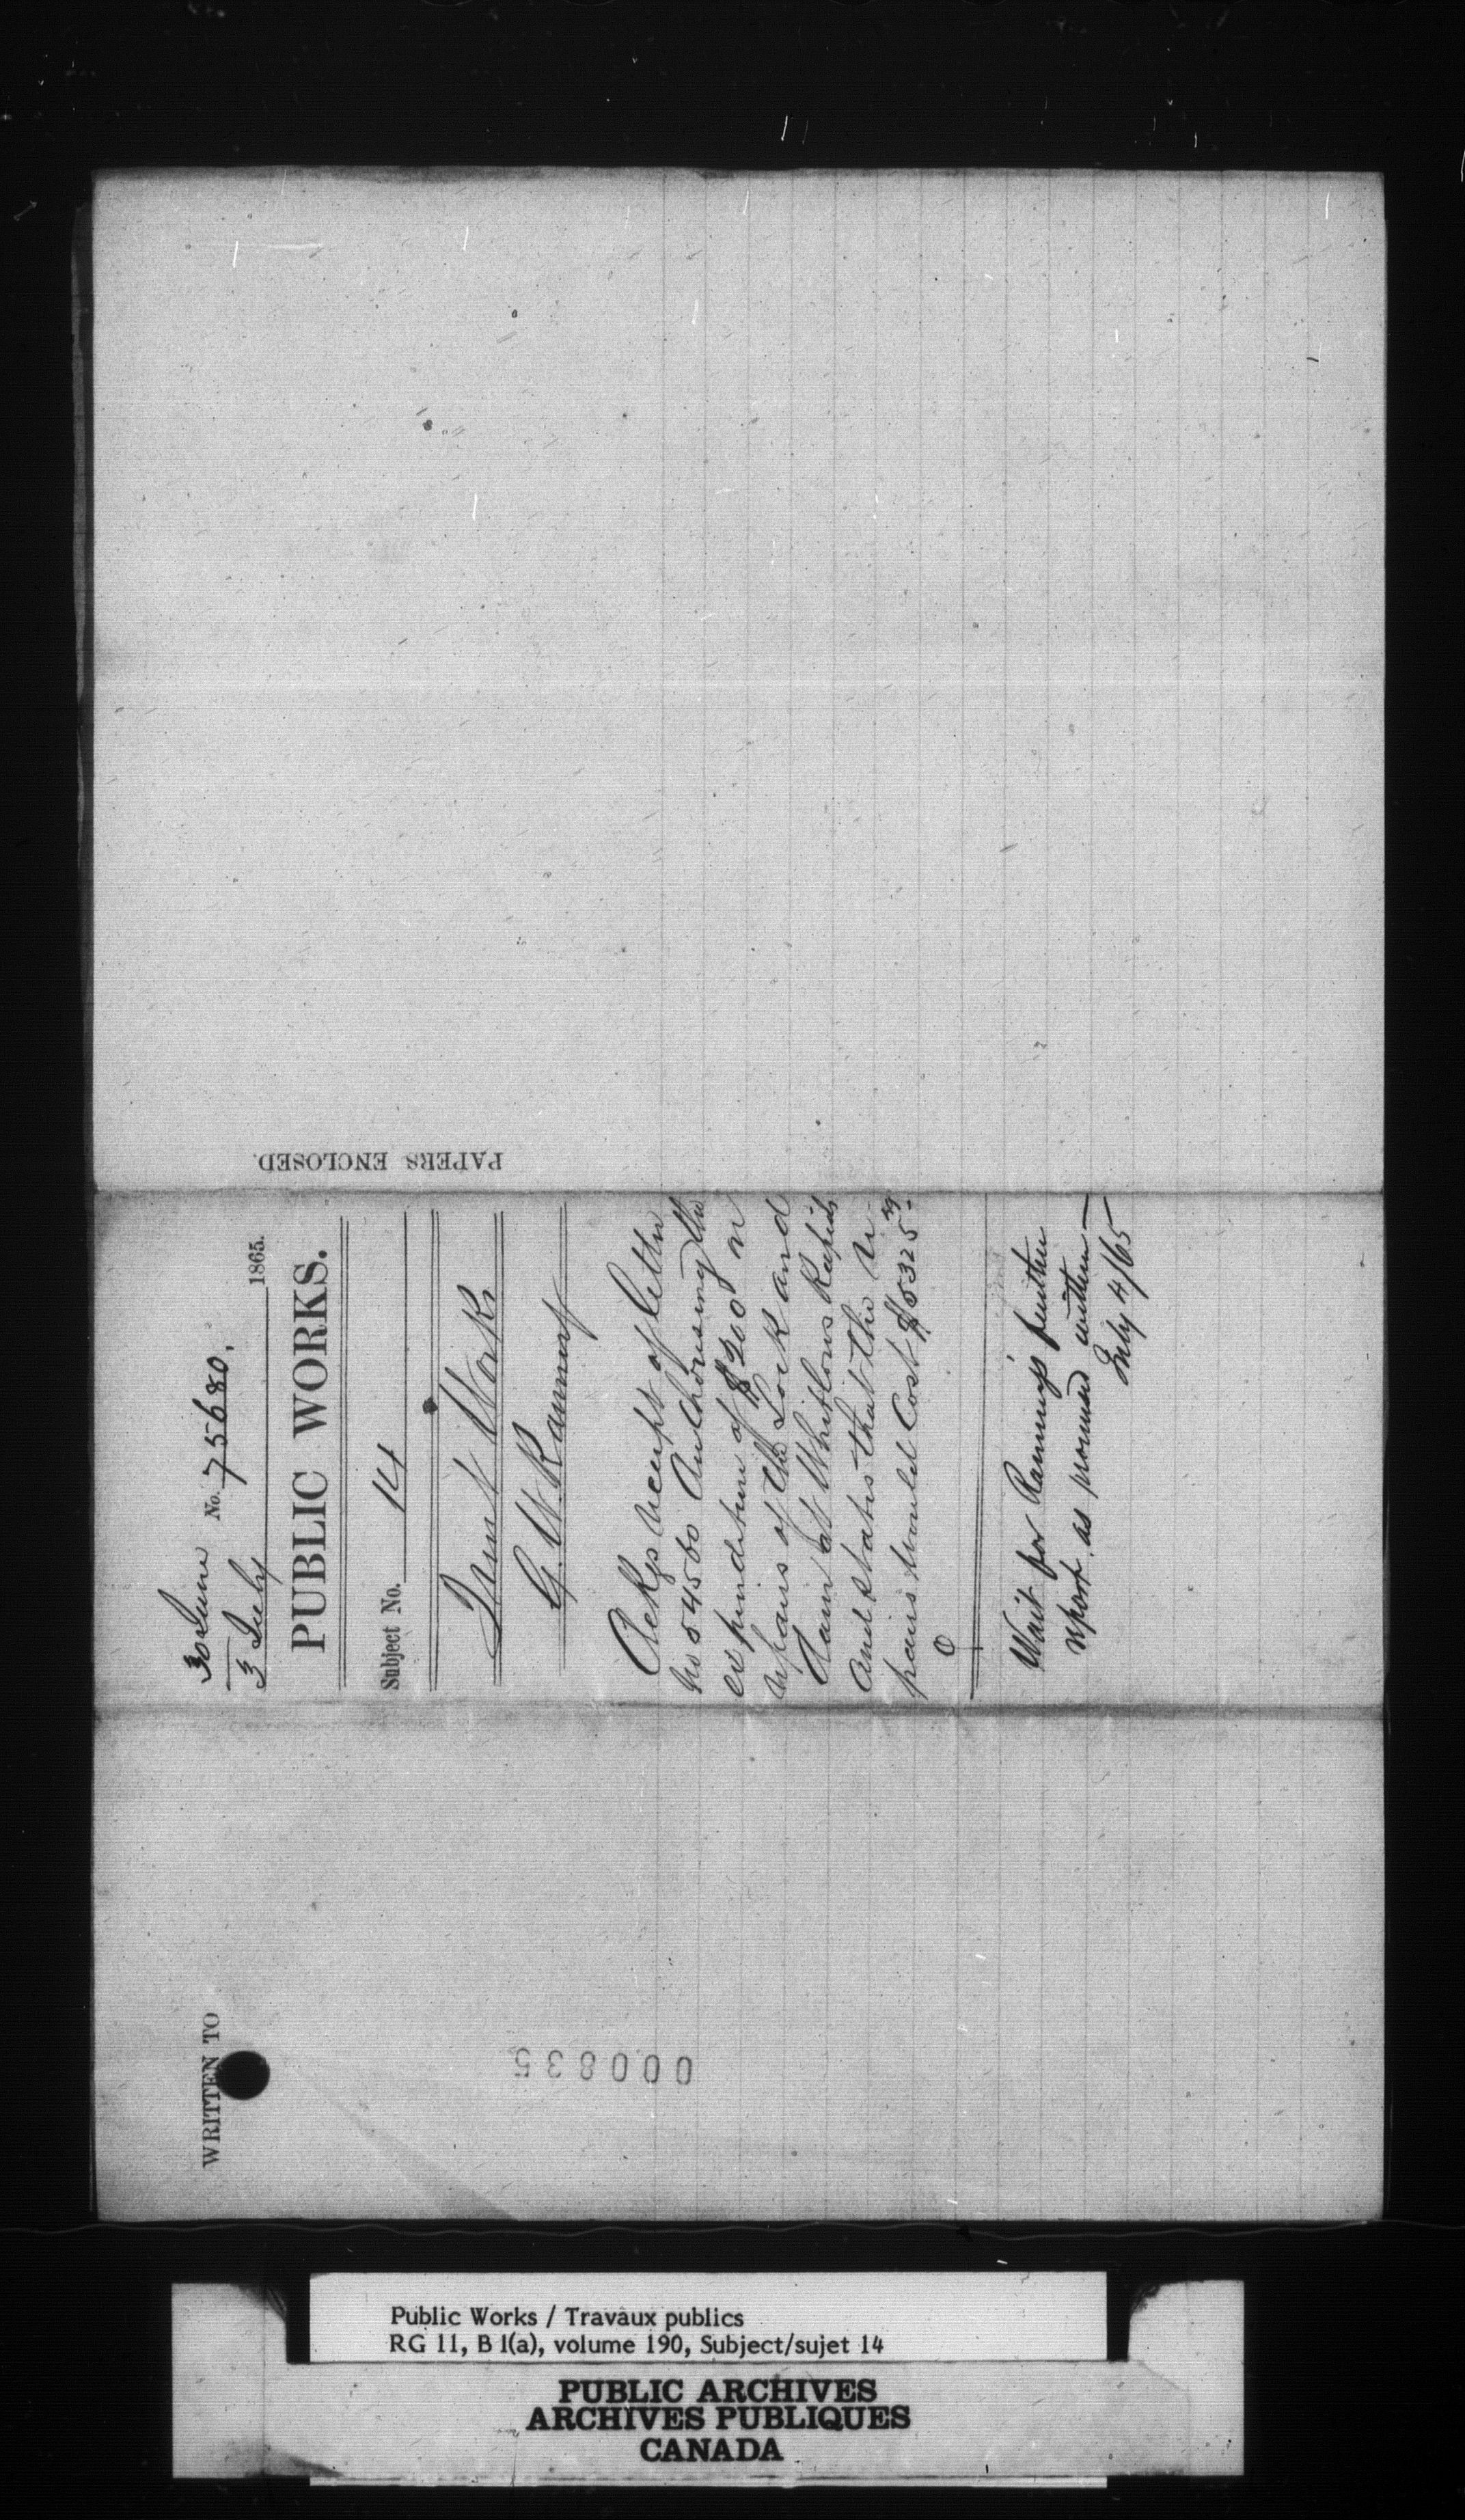 30 June No. 75680.
3 July 1865.
PUBLIC WORKS.
Subject No. 14
Trent Works
G. W. Ranney
Ackgs receipt of letter
No 54560 Authorising the
expenditure of $200 in
repairs of the Lock and
Dam at Whitlows Rapids
and states that the re-
pairs would Cost $5325
Wait for Ranney's further
report as promised within—
July 4/65
PAPERS ENCLOSED.
WRITTEN TO
000835
Public Works / Travaux publics
RG 11, B 1(a), volume 190, Subject/sujet 14
PUBLIC ARCHIVES
ARCHIVES PUBLIQUES
CANADA